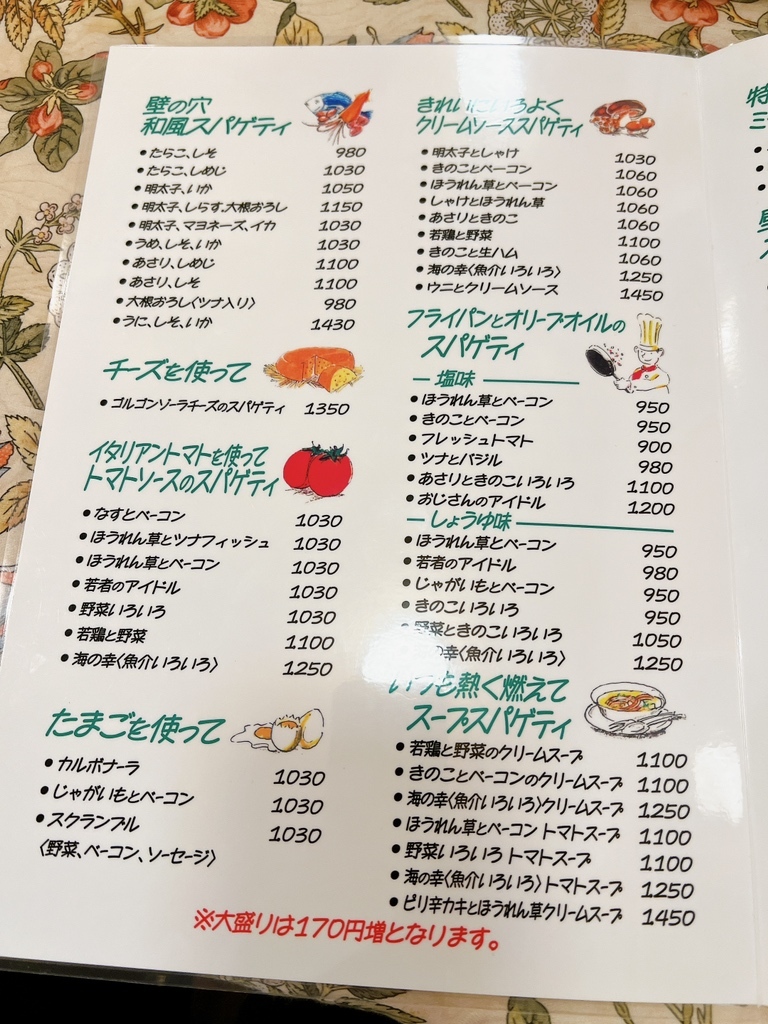 壁の穴
和風スパゲティ
•たらこ、しそ 980
•たらこ、しめじ 1030
•明太子、いか 1050
•明太子、しらす、大根おろし 1150
•明太子、マヨネーズ、イカ 1030
•うめ、しそ、いか 1030
•あさり、しめじ 1100
•あさり、しそ 1100
•大根おろし〈ツナ入り〉 980
•うに、しそ、いか 1430
チーズを使って
•ゴルゴンゾーラチーズのスパゲティ 1350
イタリアントマトを使って
トマトソースのスパゲティ
•なすとベーコン 1030
•ほうれん草とツナフィッシュ 1030
•ほうれん草とベーコン 1030
•若者のアイドル 1030
•野菜いろいろ 1030
•若鶏と野菜 1100
•海の幸〈魚介いろいろ〉 1250
たまごを使って
•カルボナーラ 1030
•じゃがいもとベーコン 1030
•スクランブル 1030
〈野菜、ベーコン、ソーセージ〉
きれいにいろよく
クリームソーススパゲティ
•明太子としゃけ 1030
•きのことベーコン 1060
•ほうれん草とベーコン 1060
•しゃけとほうれん草 1060
•あさりときのこ 1060
•若鶏と野菜 1100
•きのこと生ハム 1060
•海の幸〈魚介いろいろ〉 1250
•ウニとクリームソース 1450
フライパンとオリーブ・オイルの
スパゲティ
塩味
•ほうれん草とベーコン 950
•きのことベーコン 950
•フレッシュトマト 900
•ツナとバジル 980
•あさりときのこいろいろ 1100
•おじさんのアイドル 1200
しょうゆ味
•ほうれん草とベーコン 950
•若者のアイドル 980
•じゃがいもとベーコン 950
•きのこいろいろ 950
野菜ときのこいろいろ 1050
の幸〈魚介いろいろ〉 1250
いつも熱く燃えて
スープスパゲティ
•若鶏と野菜のクリームスープ 1100
•きのことベーコンのクリームスープ 1100
•海の幸〈魚介いろいろ〉クリームスープ 1250
•ほうれん草とベーコン トマトスープ 1100
•野菜いろいろ トマトスープ 1100
•海の幸〈魚介いろいろ〉トマトスープ 1250
•ピリ辛カキとほうれん草クリームスープ 1450
※大盛りは170円増となります。